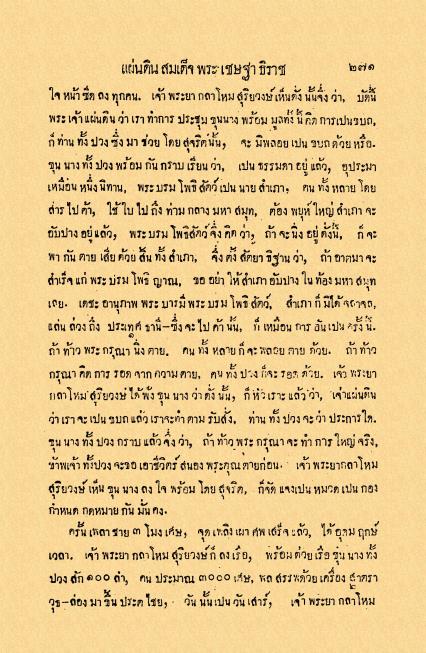 แผ่นดิน สมเด็จ พระ เชษฐา ธิราช ๒๗๑
ใจ หน้า ซีด ลง ทุกคน. เจ้า พระยา กลาโหม สุริยวงษ์ เห็นดั่ง นั้นจึ่ง ว่า, บัดนี้
พระ เจ้า แผ่นดิน ว่า เรา ทำการ ประชุม ขุนนาง พร้อม มูลทั้ง นี้ คิด การเปนขบถ,
ก็ ท่าน ทั้ง ปวง ซึ่ง มา ช่วย โดย สุจริตนั้น, จะ มิพลอย เปน ขบถ ด้วย หรือ.
ขุน นาง ทั้ง ปวง พร้อม กัน กราบ เรียน ว่า, เปน ธรรมดา อยู่ แล้ว, อุประมา
เหมือน หนึ่ง นิทาน, พระ บรม โพธิ สัตว์ เปน นาย สำเภา, คน ทั้ง หลาย โดย
สาร ไป ค้า, ใช้ ใบ ไป ถึง ท่าม กลาง มหา สมุท, ต้อง พยุห์ ใหญ่ สำเภา จะ
อับปาง อยู่ แล้ว, พระ บรม โพธิสัตว์ จึ่ง คิด ว่า, ถ้า จะ นิ่ง อยู่ ดั่งนี้, ก็ จะ
พา กัน ตาย เสีย ด้วย สิ้น ทั้ง สำเภา, จึ่ง ตั้ง สัตยา ธิฐาน ว่า, ถ้า อาตมา จะ
สำเร็จ แก่ พระ บรม โพธิ ญาณ, ขอ อย่า ให้ สำเภา อับปาง ใน ท้อง มหา สมุท
เลย. เดชะ อานุภาพ พระ บารมี พระ บรม โพธิ สัตว์, สำเภา ก็ มิได้ จลาจล,
แล่น ล่วง ถึง ประเทศ ธานี–ซึ่ง จะ ไป ค้า นั้น, ก็ เหมือน การ อันเปน ครั้ง นี้.
ถ้า ท้าว พระ กรุณา นิ่ง ตาย. คน ทั้ง หลาย ก็ จะ พลอย ตาย ด้วย. ถ้า ท้าว
กรุณา คิด การ รอด จาก ความ ตาย, คน ทั้ง ปวง ก็จะ รอด ด้วย. เจ้า พระยา
กลาโหม สุริยวงษ์ ได้ ฟัง ขุน นาง ว่า ดั่ง นั้น, ก็ หัว เราะ แล้ว ว่า, เจ้าแผ่นดิน
ว่า เรา จะ เปน ขบถ แล้ว เราจะทำ ตาม รับสั่ง, ท่าน ทั้ง ปวง จะ ว่า ประการใด.
ขุน นาง ทั้ง ปวง กราบ แล้ว จึ่ง ว่า, ถ้า ท้าว พระ กรุณา จะ ทำ การ ใหญ่ จริง,
ข้าพเจ้า ทั้งปวง จะขอ เอาชีวิตร์ สนอง พระคุณ ตายก่อน. เจ้า พระยากลาโหม
สุริยวงษ์ เห็น ขุน นาง ลง ใจ พร้อม โดย สุจริต, ก็จัด แจงเปน หมวด เปน กอง
กำหนด กฎหมาย กัน มั่น คง.
ครั้น เพลา ชาย ๓ โมง เศษ, จุด เพลิง เผา ศพ เสร็จ แล้ว, ได้ อุดม ฤกษ์
เวลา. เจ้า พระยา กลาโหม สุริยวงษ์ ก็ ลง เรือ, พร้อม ด้วย เรือ ขุน นาง ทั้ง
ปวง สัก ๑๐๐ ลำ, คน ประมาณ ๓๐๐๐ เศษ, พล สรรพด้วย เครื่อง สาตรา
วุธ–ล่อง มา ขึ้น ประตู ไชย, วัน นั้น เปน วัน เสาร์, เจ้า พระยา กลาโหม